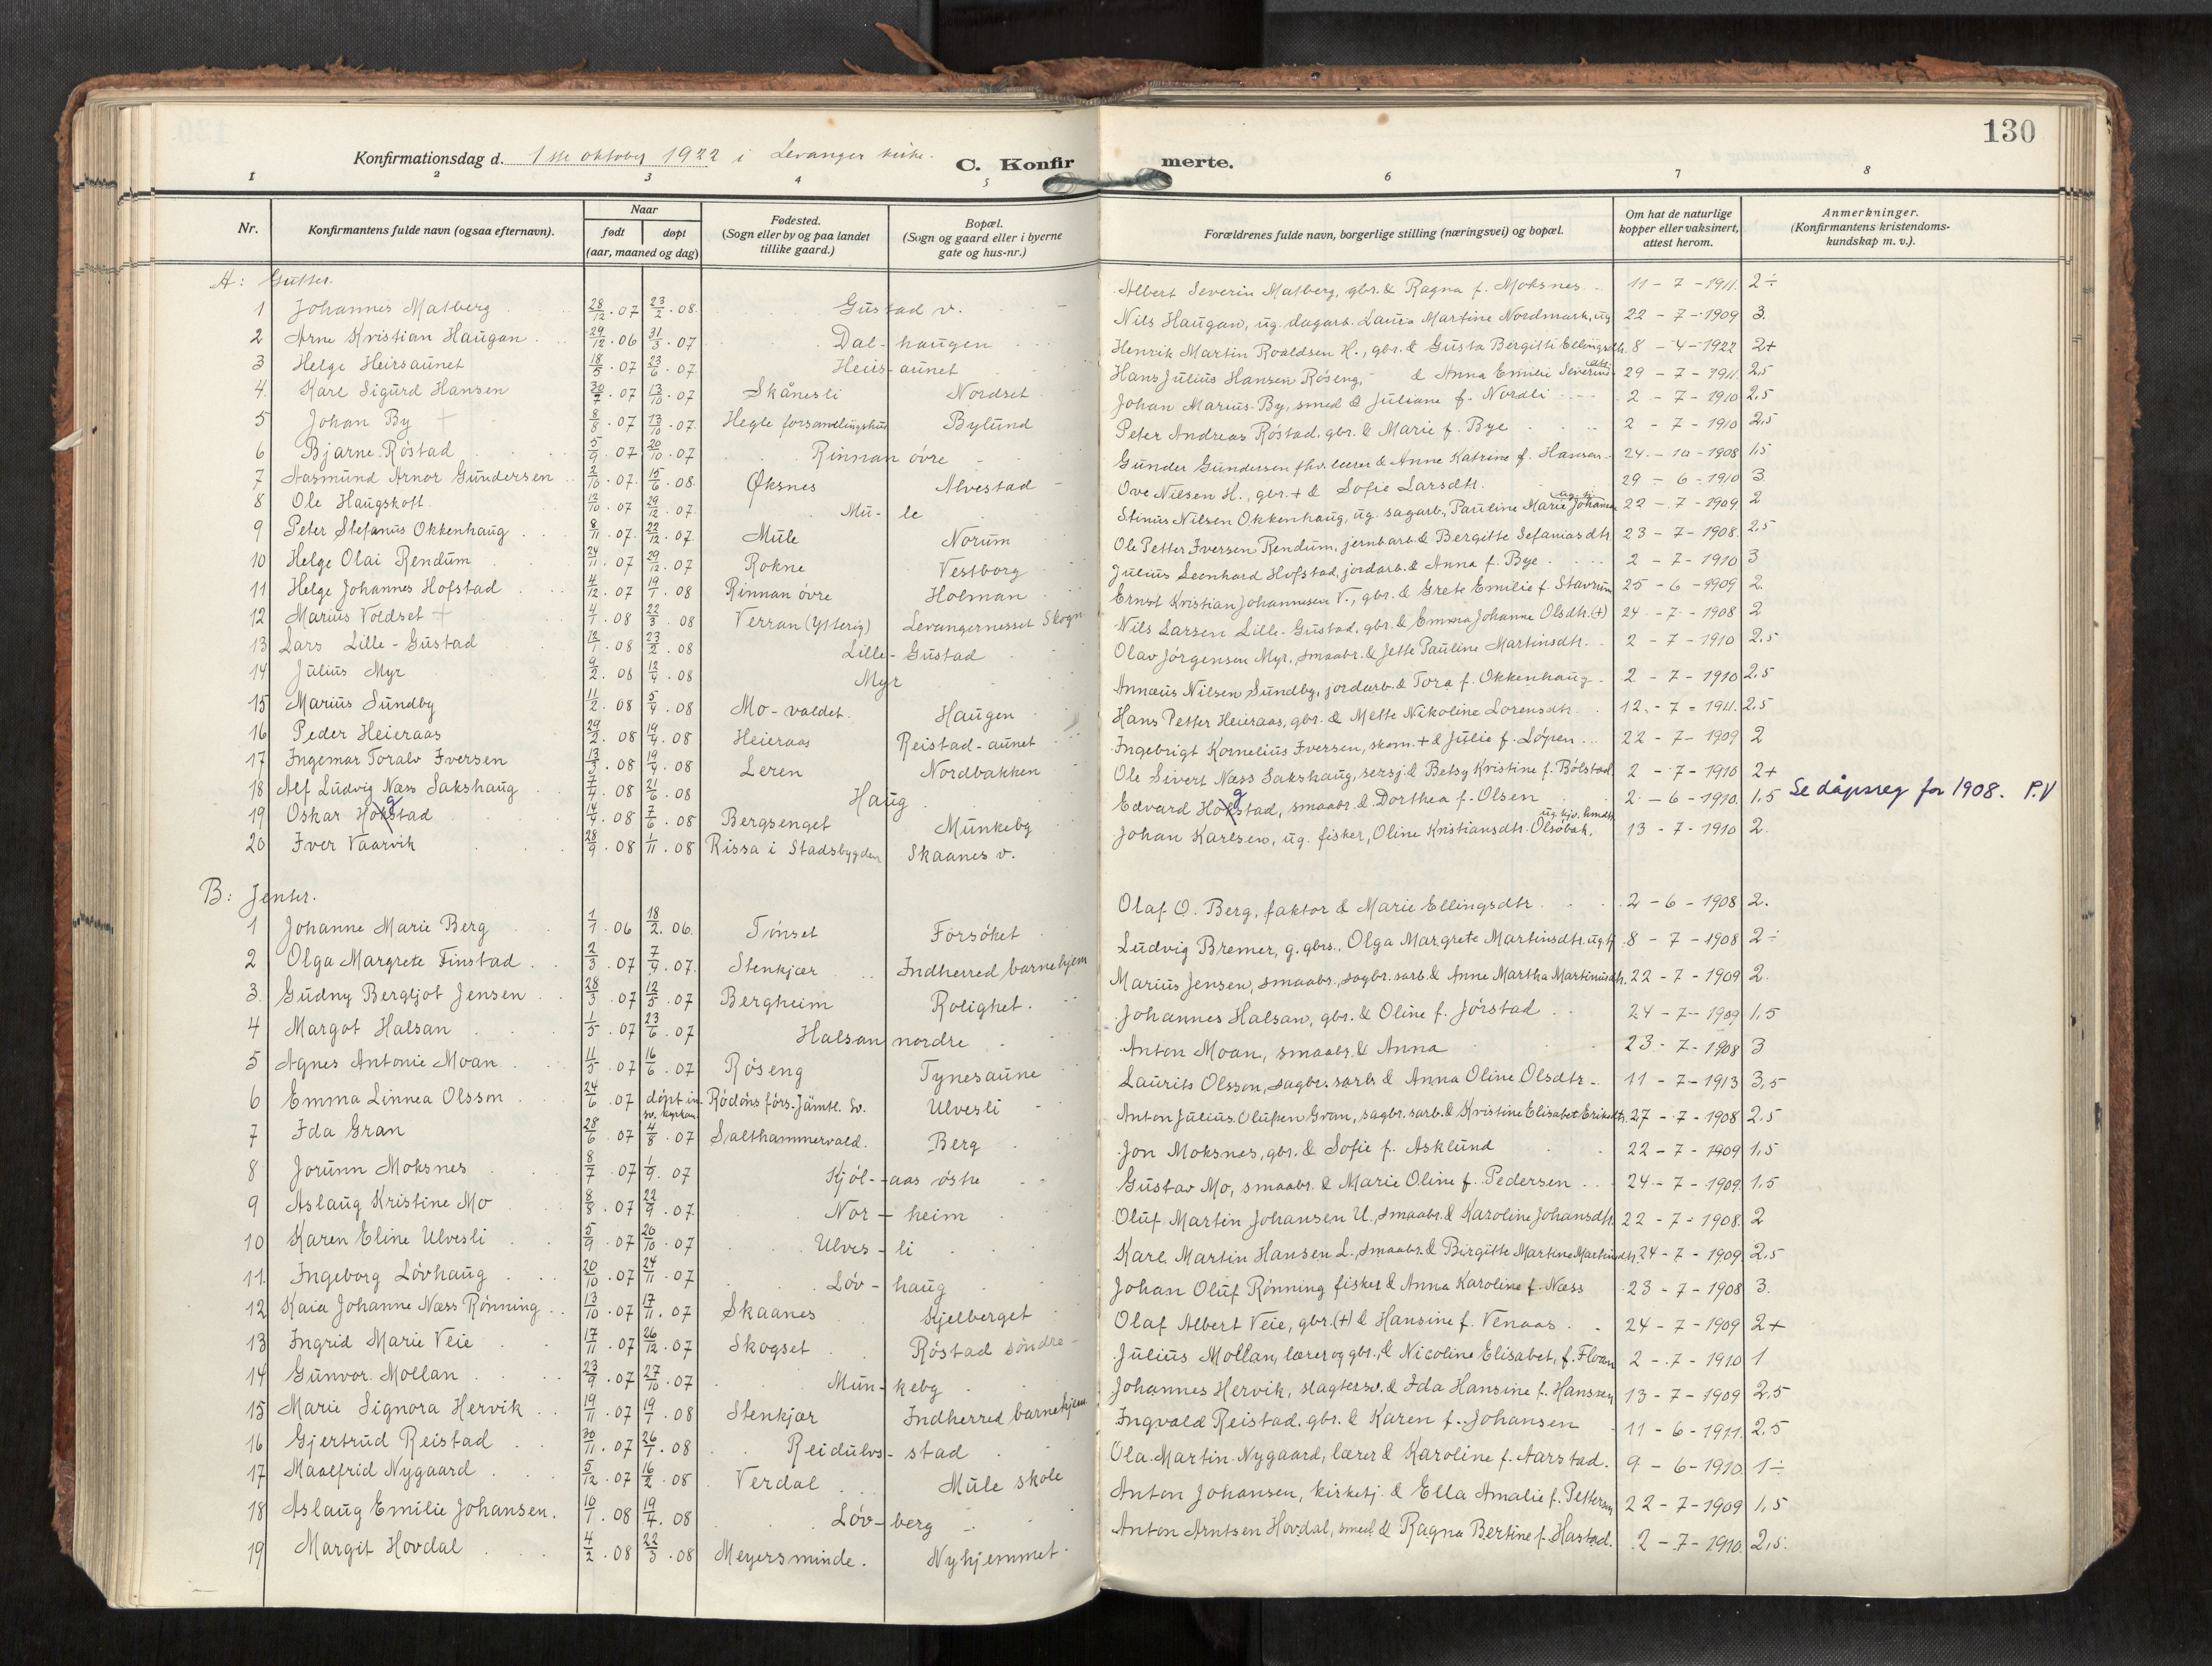 130
Konfirmationsdag d. 1ste oktober 1922 i Levanger kirke.
C. Konfirmerte.
1 2 3 4 5 6 7 8
Nr. Konfirmantens fulde navn (ogsaa efternavn). Naar født døpt (aar, maaned og dag) Fødested. (Sogn eller by og paa landet tillike gaard.) Bopæl. (Sogn og gaard eller i byerne gate og hus-nr.) Forældrenes fulde navn, borgerlige stilling (næringsvei) og bopæl. Om hat de naturlige kopper eller vaksinert, attest herom. Anmerkninger. (Konfirmantens kristendomskundskap m. v.).
A: Gutter.
1 Johannes Matberg 28/12.07 23/2.08 Gustad v. Albert Severin Matberg, gbr. & Ragna f. Moksnes 11-7-1911 2÷
2 Arne Kristian Haugan 29/12.06 31/3.07 Dal-haugen Nils Haugan, ug. dagarb. Laura Martine Nordmark, ug 22-7-1909 3.
3 Helge Heirsaunet 18/5.07 23/6.07 Heirs-aunet Henrik Martin Roaldsen H., gbr. & Gusta Bergitte Ellingsdtr. 8-4-1922 2+
4. Karl Sigurd Hansen 30/7.07 13/10.07 Skånesli Nordset Hans Julius Hansen Röseng, & Anna Emilie Severinsdtr 29-7-1911 2,5
5 Johan By + 8/8.07 13/10.07 Hegle forsamlingshus Bylund Johan Marius By, smed & Juliane f. Nordli 2-7-1910 2,5
6 Bjarne Röstad 5/9.07 20/10.07 Rinnan övre Peter Andreas Röstad, gbr. & Marie f. Bye 2-7-1910 2,5
7 Aasmund Arnor Gundersen 2/10.07 15/6.08 Øksnes Alvestad Gunder Gundersen fhv. lærer & Anne Katrine f. Hansen 24-10-1908 1,5
8 Ole Haugskott 12/10.07 29/12.07 Mu-le Ove Nilsen H., gbr. + & Sofie Larsdtr. 29-6-1910 3
9 Peter Stefanus Okkenhaug 8/11.07 22/12.07 Mule Norum Stinus Nilsen Okkenhaug, ug. sagarb., Pauline Marie Johansen ug. tj. 22-7-1909 2
10 Helge Olai Rendum 24/11.07 29/12.07 Rokne Vestborg Ole Petter Iversen Rendum, jernbarb. & Bergitte Sefaniasdtr 23-7-1908 2,5
11 Helge Johannes Hofstad 4/12.07 19/1.08 Rinnan övre Holman Julius Leonhard Hofstad, jordarb. & Anna f. Bye 2-7-1910 3
12 Marius Voldset + 4/1.08 22/3.08 Verran (Ytterig) Levangernesset Skogn Ernst Kristian Johannesen V., gbr. & Grete Emilie f. Stavrum 25-6-9909 2
13 Lars Lille-Gustad 12/1.08 23/2.08 Lille-Gustad Nils Larsen Lille-Gustad, gbr. & Emma Johanne Olsdtr. (+) 24-7-1908 2
14 Julius Myr 9/2.08 12/4.08 Myr Olav Jörgensen Myr, smaabr. & Jette Pauline Martinsdtr. 2-7-1910 2,5
15 Marius Sundby 11/2.08 5/4.08 Mo-valdet. Haugen Annæus Nilsen Sundby, jordarb. & Tora f. Okkenhaug 2-7-1910 2,5
16 Peder Heieraas 29/2.08 19/4.08 Heieraas Reistad-aunet Hans Petter Heieraas, gbr. & Mette Nikoline Lorensdtr 12-7-1911 2,5
17 Ingemar Toralv Iversen 13/3.08 19/4.08 Leren Nordbakken Ingebrigt Kornelius Iversen, skom. + & Julie f. Löpen 22-7-1909 2
18 Alf Ludvig Næss Sakshaug 7/4.08 21/6.08 Haug Ole Sivert Næss Sakshaug, sersj. & Betsy Kristine f. Bölstad 2-7-1910 2+
19 Oskar Hokstad g 14/4.08 7/6.08 Bergsenget Munkeby Edvard Hokstad, g smaabr. & Dorthea f. Olsen 2-6-1910 1,5 Se dåpsreg for 1908. P.V
20 Iver Vaarvik 28/9.08 1/11.08 Rissa i Stadsbygden Skaanes v. Johan Karlsen, ug. fisker, Oline Kristiansdtr. Olsöbak, ug. kjv. hmdtr 13-7-1910 2.
B: Jenter.
1 Johanne Marie Berg 1/1.06 18/2.06. Tönset Forsöket Olaf O. Berg, faktor & Marie Ellingsdtr 2-6-1908 2.
2 Olga Margrete Finstad 2/3.07 7/4.07. Stenkjær Indherred barnehjem Ludvig Bremer, g. gbrs., Olga Margrete Martinsdtr. ug. tj 8-7-1908 2÷
3. Gudny Bergljot Jensen 28/3.07 12/5.07 Bergheim Rolighet. Marius Jensen, smaabr., sagbr. sarb. & Anne Martha Martinusdtr. 22-7-1909 2.
4 Margot Halsan 1/5.07 23/6.07 Halsan nordre Johannes Halsan, gbr. & Oline f. Jörstad 24-7-1909 1,5
5 Agnes Antonie Moan 11/5.07 16/6.07 Röseng Tynesaune Anton Moan, smaabr. & Anna 23-7-1908 3
6 Emma Linnea Olsson 24/6.07 döpt in. sv. kyrkan Rödöns förs. Jämtl. Sv. Ulvesli Laurits Olsson, sagbr. sarb & Anna Oline Olsdtr 11-7-1913 3,5
7 Ida Gran 28/6.07 4/8.07 Salthammervald. Berg Anton Julius Olufsen Gran, sagbr. sarb. & Kristine Elisabet Eriksdtr. 27-7-1908 2.5
8 Jorunn Moksnes 8/7.07 1/9.07 Kjöl-aas östre Jon Moksnes, gbr. & Sofie f. Asklund 22-7-1909 1,5
9 Aslaug Kristine Mo 8/8.07 22/9.07. Nor-heim Gustav Mo, smaabr. & Marie Oline f. Pedersen 24-7-1909. 1.5
10 Karen Eline Ulvesli 5/9.07 20/10.07 Ulves-li Oluf Martin Johansen U., smaabr. & Karoline Johansdtr. 22-7-1908. 2
11. Ingeborg Lövhaug 20/10.07 24/11.07 Löv-haug Karl Martin Hansen L., smaabr. & Birgitte Martine Martinsdtr. 24-7-1909. 2,5
12 Kaia Johanne Næss Rönning 13/10.07 17/11.07 Skaanes Kjelberget Johan Oluf Rönning fisker & Anna Karoline f. Næss 23-7-1908 3.
13 Ingrid Marie Veie 17/11.07 26/12.07 Skogset Röstad söndre Olaf Albert Veie, gbr. (+) & Hansine f. Venaas 24-7-1909 2+
14 Gunvor Mollan 23/9.07 27/10.07 Mun-keby Julius Mollan, lærer og gbr., & Nicoline Elisabet, f. Floan 2-7-1910 1
15 Marie Signora Hervik 19/11.07 19/1.08 Stenkjær Indherred barnehjem Johannes Hervik, slagtersv. & Ida Hansine f. Hanssen 13-7-1909 2,5
16 Gjertrud Reistad 30/11.07 26/1.08 Reidulvs-stad Ingvald Reistad, gbr. & Karen f. Johansen 11-6-1911. 2,5
17 Maalfrid Nygaard 5/12.07 16/2.08 Verdal Mule skole Ola Martin Nygaard, lærer & Karoline f. Aarstad. 9-6-1910. 1÷
18 Aslaug Emilie Johansen. 10/1.08 19/4.08 Löv-berg Anton Johansen, kirketj. & Ella Amalie f. Pettersen 22-7-1909 1,5
19 Margit Hovdal 4/2.08 22/3.08 Meyersminde. Nyhjemmet. Anton Arntsen Hovdal, smed & Ragna Bertine f. Hastad. 2-7-1910. 2,5.